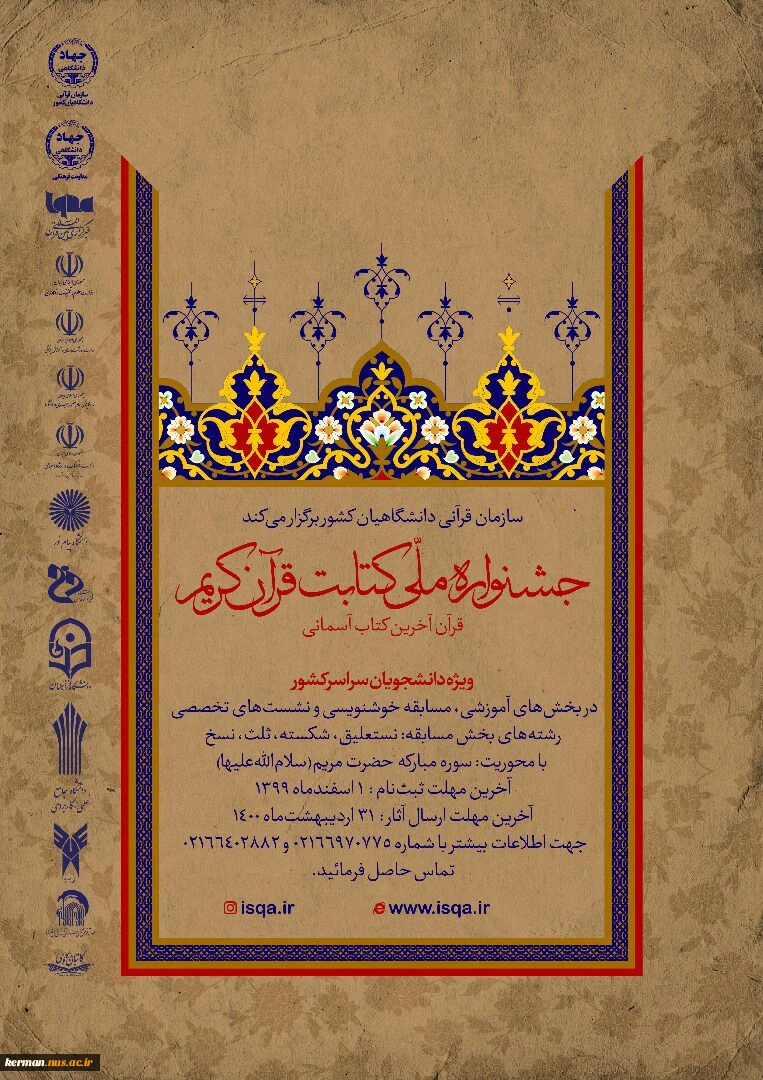 سازمان قرآنی دانشگاهیان کشور برگزار می‌کند
جشنواره ملّی کتابت قرآن کریم
قرآن آخرین کتاب آسمانی
ویژه دانشجویان سراسر کشور
در بخش‌های آموزشی، مسابقه خوشنویسی و نشست‌های تخصصی
رشته‌های بخش مسابقه: نستعلیق، شکسته، ثلث، نسخ
با محوریت: سوره مبارکه حضرت مریم (سلام‌الله‌علیها)
آخرین مهلت ثبت‌نام: ۱ اسفندماه ۱۳۹۹
آخرین مهلت ارسال آثار: ۳۱ اردیبهشت‌ماه ۱۴۰۰
جهت اطلاعات بیشتر با شماره ۰۲۱۶۶۹۷۰۷۷۵ و ۰۲۱۶۶۴۰۲۸۸۲
تماس حاصل فرمائید.
www.isqa.ir
isqa.ir
جهاد
دانشگاهی
سازمان قرآنی
دانشگاهیان کشور
جهاد
دانشگاهی
معاونت فرهنگی
iqna
دانشگاه پیام نور
دانشگاه فرهنگیان
دانشگاه جامع
علمی کاربردی
kerman.nus.ac.ir